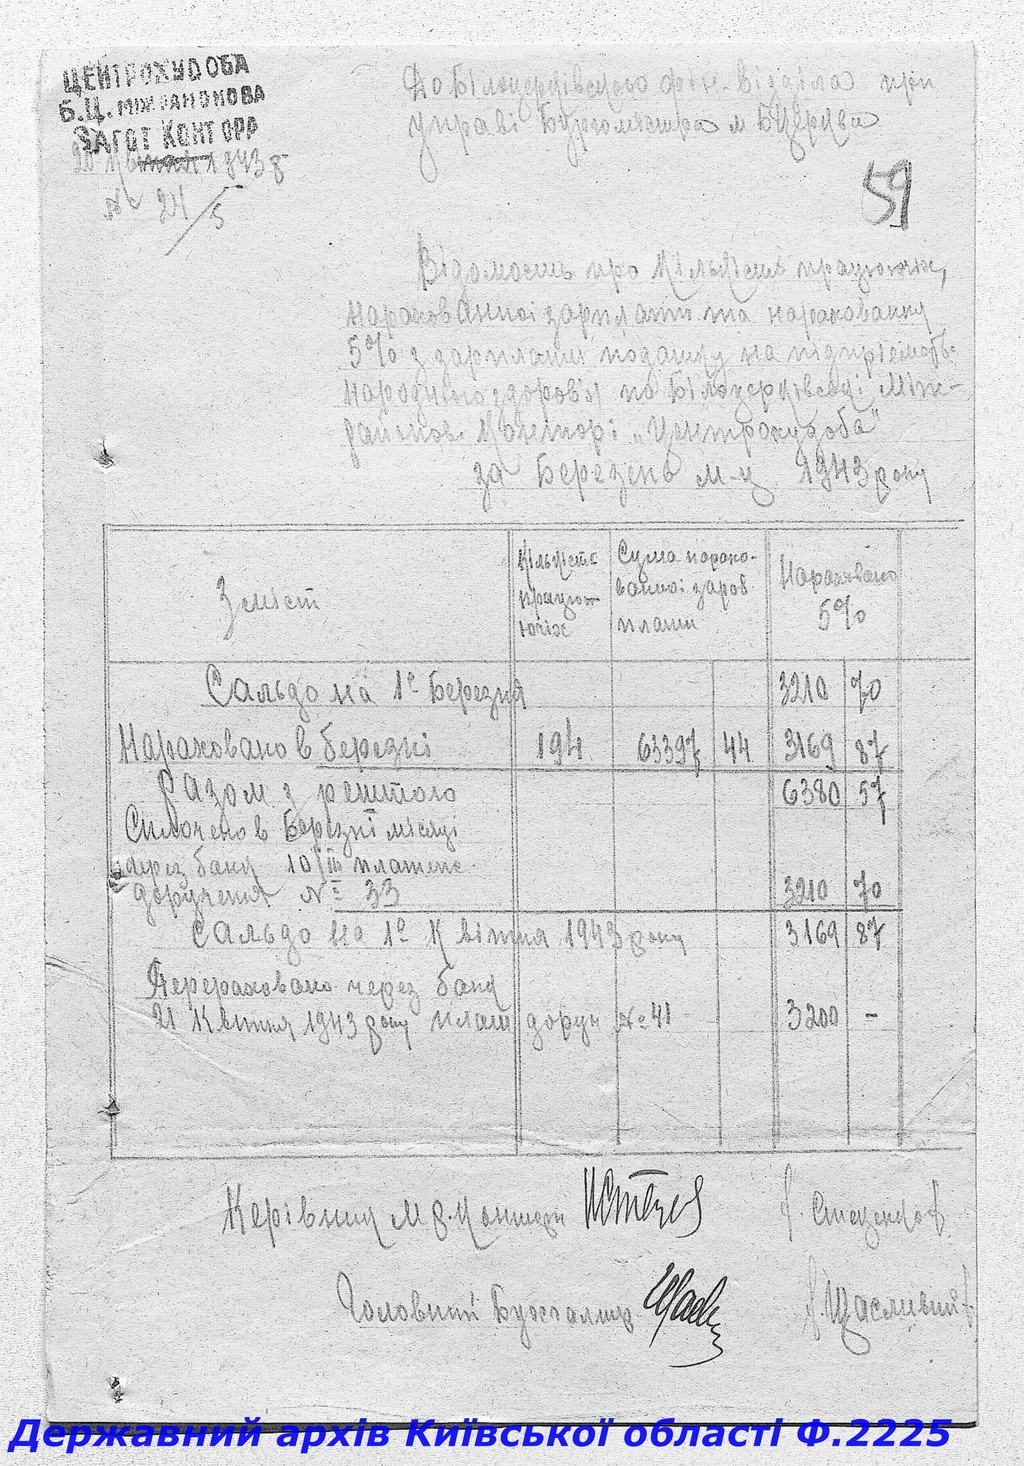 ЦЕНТРОХУДОБА
Б.Ц. МІЖРАЙОНОВА
ЗАГОТ КОНТОРА
1943 р
№ 24/5
До Білоцерківського фін-відділа при
управі Бургомістра м Б Церква
59
Відомость про кількість працюючих,
нарахованної зарплати та нараховання
5% з зарплати податку на підприємств
народного здоров'я по Білоцерківській Між-
районов конторі „Центрохудоба"
за Березень м-ц 1943 року
Зміст
Кількість працюючих
Сума нарахованної заробплати
Нараховано 5%
Сальдо на 1е Березня 3210 70
Нараховано в березні 194 63397 44 3169 87
Разом з рештою 6380 57
Сплочено в Березні місяці
через банк 10/III платеже
доручення № 33 3210 70
Сальдо на 1е Квітня 1943 року 3169 87
Перераховано через банк
21 Квітня 1943 року плат доруч № 41 3200 -
Керівник М Р. Контори
Головний Бухгалтер /. Щасливий/
Державний архів Київської області Ф.2225